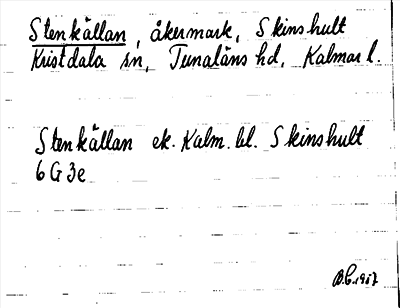 Stenkällan, åkermark, Skinshult
Kristdala sn, Tunaläns hd, Kalmar l.
Stenkällan ek. Kalm. bl. Skinshult
6 G 3e